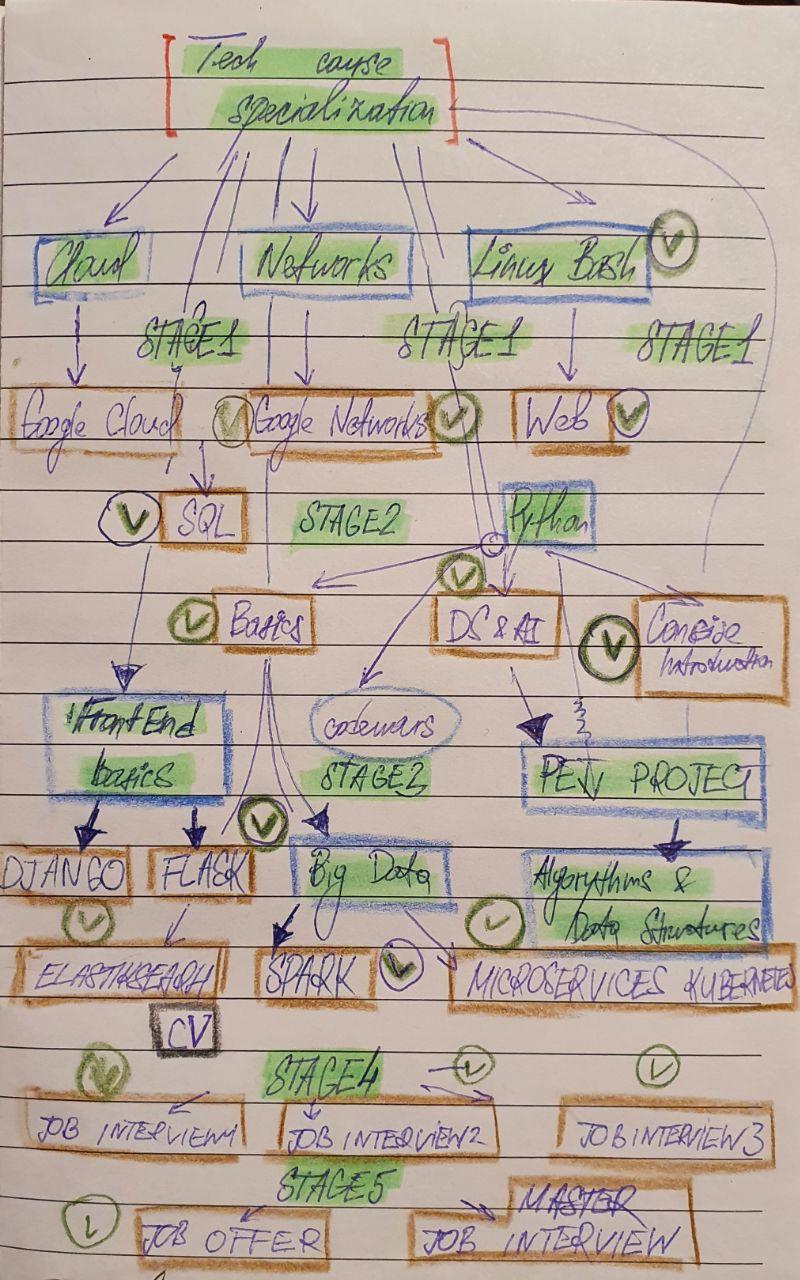 Tech couse
specialization
Cloud
Networks
Linux Bash
STAGE1
STAGE1
STAGE1
Google Cloud
Google Networks
Web
SQL
STAGE2
Python
Basics
DS & AI
Concise
Introduction
Front End
basics
codewars
STAGE2
PET PROJECT
DJANGO
FLASK
Big Data
Algorythms &
Data Structures
ELASTIKSEARH
SPARK
MICROSERVICES KUBERNETES
CV
STAGE4
JOB INTERVIEW1
JOB INTERVIEW2
JOB INTERVIEW3
STAGE5
MASTER
JOB OFFER
JOB INTERVIEW